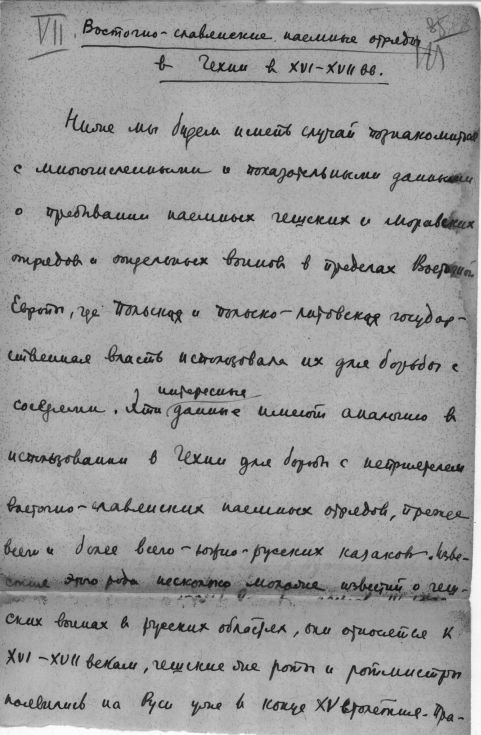 VII. Восточно-славянские наемные отряды
в Чехии в XVI-XVII вв.
Ниже мы будем иметь случай познакомиться
с многочисленными и показательными данными
о пребывании наемных чешских и моравских
отрядов и отдельных воинов в пределах Восточной
Европы, где польская и польско-литовская государ-
ственная власть использовала их для борьбы с
соседями. Эти интересные данные имеют аналогию в
использовании в Чехии для борьбы с неприятелем
восточно-славянских наемных отрядов, прежде
всего и более всего - южно-русских казаков. Изве-
стия этого рода несколько моложе известий о чеш-
ских воинах в русских областях, они относятся к
XVI-XVII векам, чешские же роты и ротмистры
появились на Руси уже в конце XV столетия. Пра-